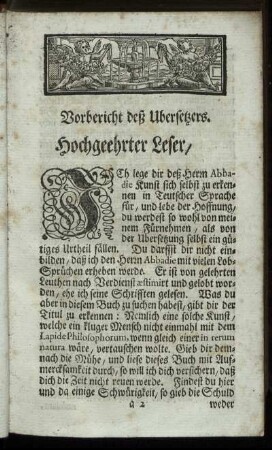 Vorbericht deß Ubersetzers.
Hochgeehrter Leser/
ICh lege dir deß Herrn Abba-
die Kunst sich selbst zu erken-
nen in Teutscher Sprache
für, und lebe der Hoffnung,
du werdest so wohl von mei-
nem Fürnehmen, als von
der Ubersetzung selbst ein gü-
tiges Urtheil fällen. Du darffst dir nicht ein-
bilden, daß ich den Herrn Abbadie mit vielen Lob-
Sprüchen erheben werde. Er ist von gelehrten
Leuthen nach Verdienst æstimirt und gelobt wor-
den, ehe ich seine Schrifften gelesen. Was du
aber in diesem Buch zu suchen habest, gibt dir der
Titul zu erkennen: Nemlich eine solche Kunst,
welche ein kluger Mensch nicht einmahl mit dem
Lapide Philosophorum, wenn gleich einer in rerum
natura wäre, vertauschen wolte. Gieb dir dem-
nach die Mühe, und liese dieses Buch mit Auf-
mercksamkeit durch, so will ich dich versichern, daß
dich die Zeit nicht reuen werde. Findest du hier
und da einige Schwürigkeit, so gieb die Schuld
a 2 weder